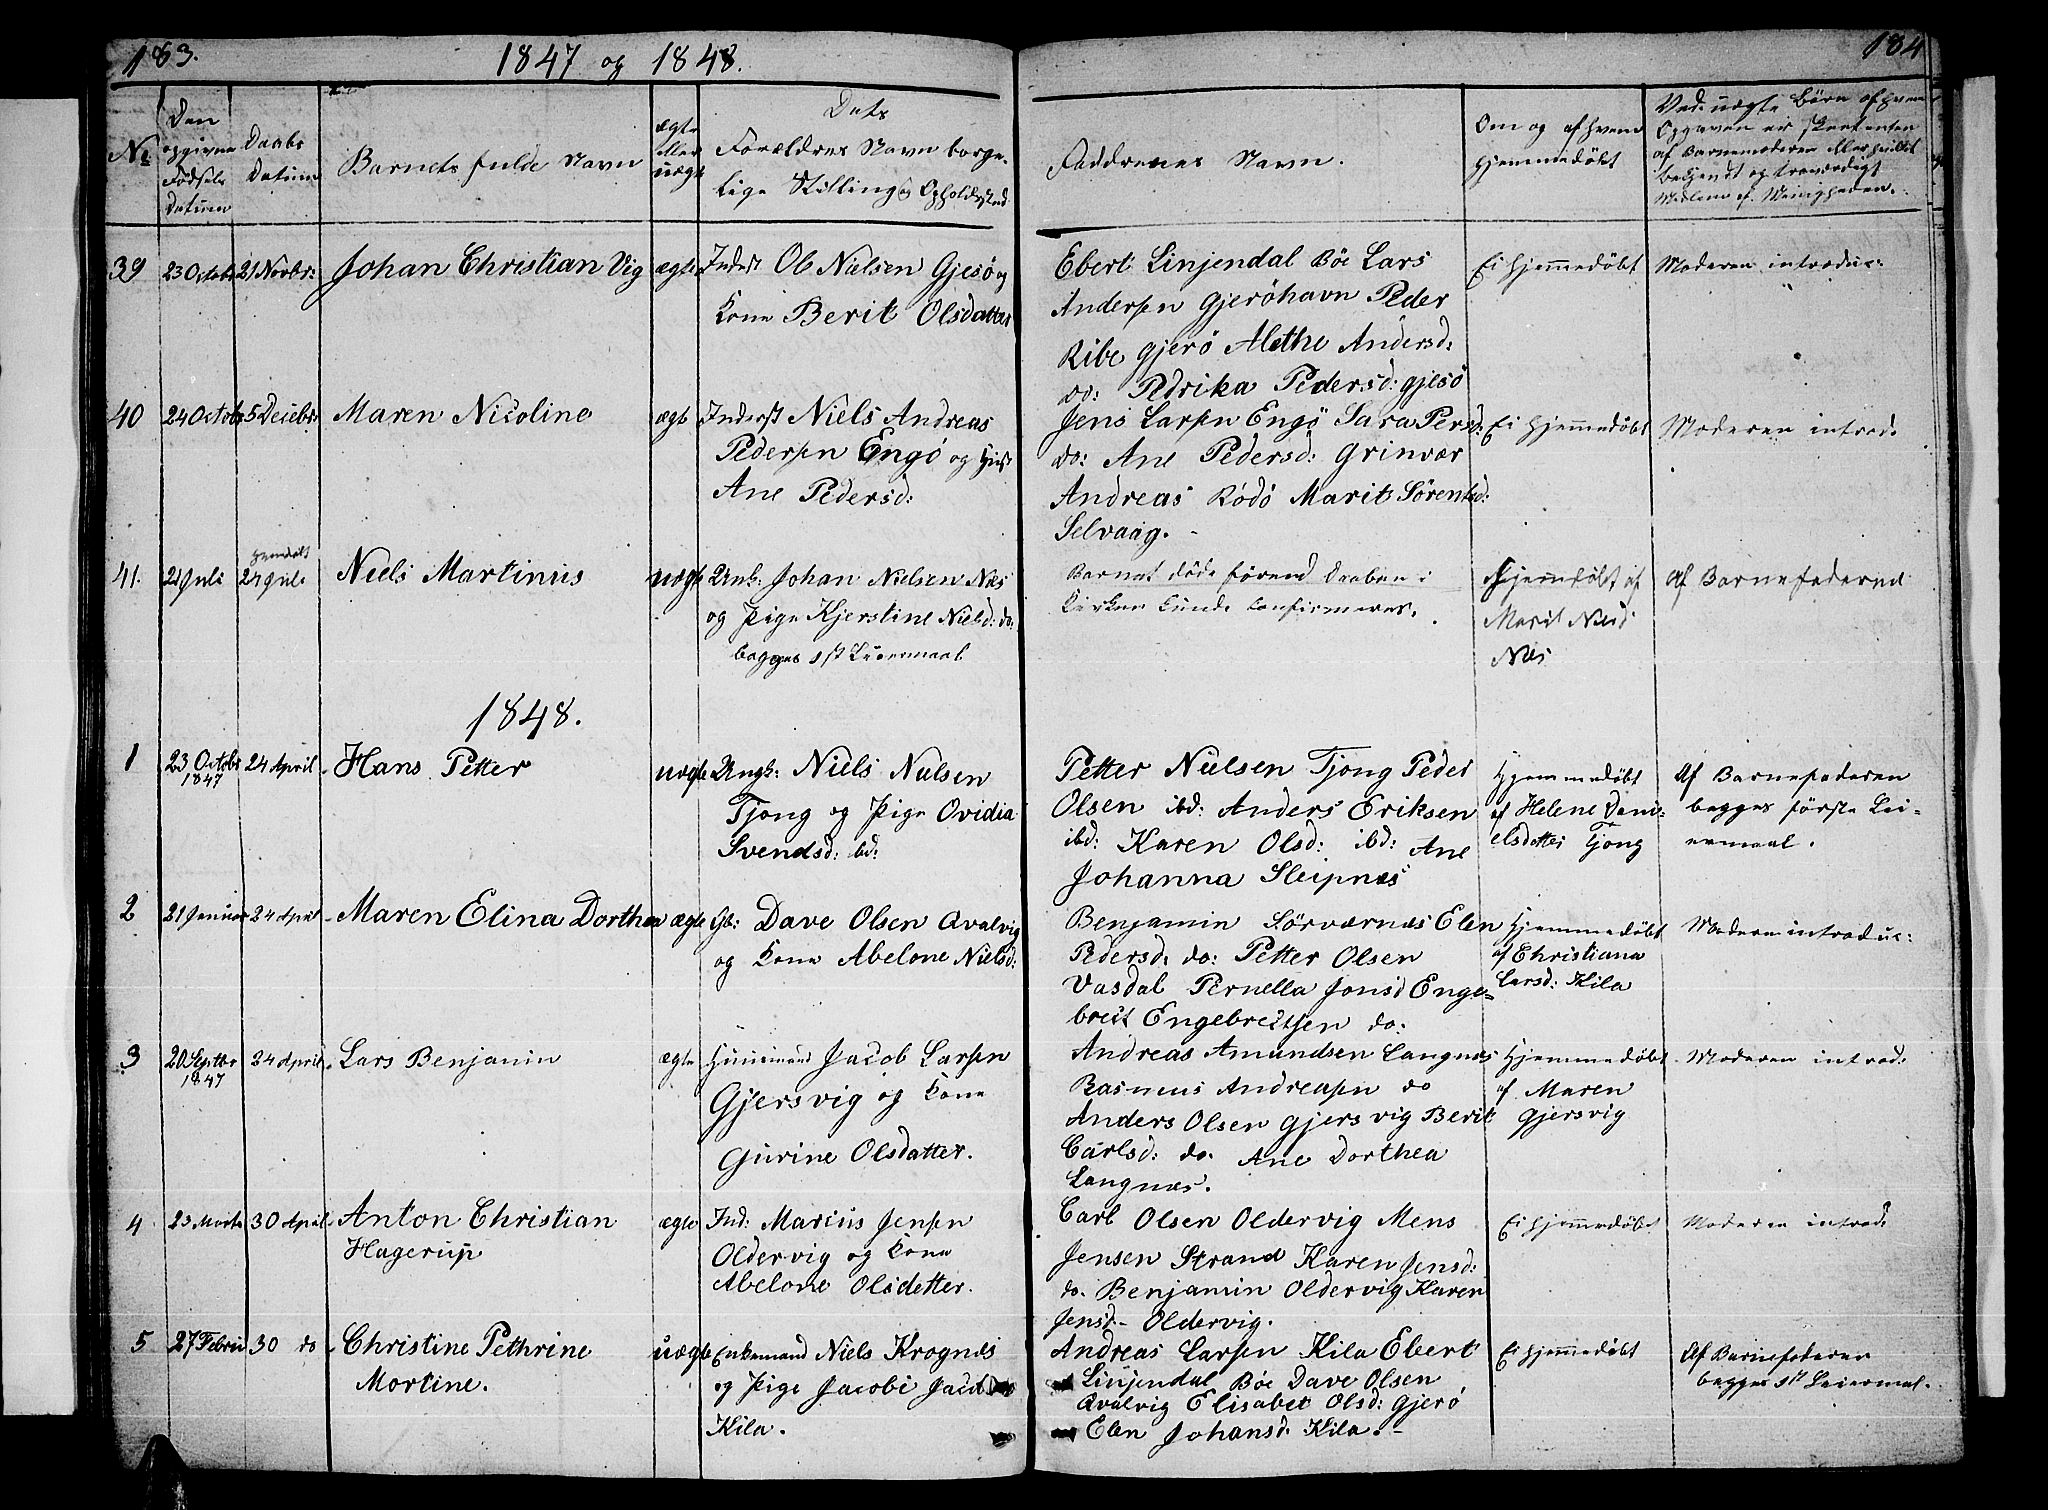 183.
1847 og 1848.
184
No
Den opgivne Fødsels Datum
Daabs Datum
Barnets fulde Navn
ægte eller uægte
Dets Forældres Navn borgelige Stilling og Opholdssted
Faddrenes Navn.
Om og af hvem hjemmedøbt
Ved uægte Børn af hvem Opgaven er skeet enten af Barnemoderen eller hvilket bekjendt og troværdigt Medlem af Meenigheden.
39
23 Octobr
21 Novbr:
Johan Christian Vig
ægte
Inderst Ole Nielsen Gjesø og
Kone Berit Olsdatter
Ebert Linjendal Bøe Lars
Andersen Gjerøhavn Peder
Ribe Gjerø Alethe Andersd:
do: Pedrika Pedersd: Gjesø
Ei hjemmedøbt
Moderen introduc:
40
24 Octobr
5 Decebr:
Maren Nicoline
ægte
Inderst Niels Andreas
Pedersen Engø og Hust
Ane Pedersd:
Jens Larsen Engø Sara Persd:
do: Ane Pedersd: Grinvær
Andreas Rödö Marit Sørensd:
Selvaag.
Ei hjemmedøbt
Moderen introd:
41.
21 Juli
hjemdøbt
24 Juli
Niels Martinus
uægte
Unk: Johan Nielsen Næs
og Pige Kjerstine Nielsd: do:
begges 1st Leiermaal
Barnet døde førend Daaben i
Kirken kunde confirmeres.
Hjemdøbt af
Marit Nielsd
Næs
Af Barnefaderen
1848.
1
23 Octobr
1847
24 April
Hans Petter
uægte
Ungk: Niels Nielsen
Tjong og Pige Ovidia
Svendsd: ibd:
Petter Nielsen Tjong Peder
Olsen ibd: Anders Eriksen
ibd: Karen Olsd: ibd: Ane
Johanna Sleipnæs
Hjemmedøbt
af Helene Dani-
elsdatter Tjong
Af Barnefaderen
begges første Lei-
ermaal.
2
21 Januar
24 April
Maren Elina Dorthea
ægte
Gb: Dave Olsen Avalvig
og Kone Abelone Nielsd:
Benjamin Sörværnæs Elen
Pedersd: do: Petter Olsen
Vasdal Pernella Jonsd Enge-
bret Engebretsen do:
Hjemmedøbt
af Christiana
Larsd: Kila
Moderen introduc:
3
20 Septbr
1847
24 April
Lars Benjamin
ægte
Huusmand Jacob Larsen
Gjersvig og Kone
Gurine Olsdatter.
Andreas Amundsen Langnæs
Rasmus Andreasen do
Anders Olsen Gjersvig Berit
Carlsd: do. Ane Dorthea
Langnæs.
Hjemmedøbt
af Maren
Gjersvig
Moderen introd:
4
23 Marts
30 April
Anton Christian
Hagerup
ægte
Ind: Marcus Jensen
Oldervig og Kone
Abelone Olsdatter.
Carl Olsen Oldervig Mens
Jensen Strand Karen Jensd:
do. Benjamin Oldervig Karen
Jensd- Oldervig.
Ei hjemmedøbt
Moderen introd:
5
27 Febru
30 do
Christine Pethrine
Mortine.
uægte
Enkemand Niels Krognæs
og Pige Jacobi
Kila.
Andreas Larsen Kila Ebert
Linjendal Bøe Dave Olsen
Avalvig Elisabet Olsd: Gjerö
Elen Johansd: Kila.
Ei hjemmedøbt
Af Barnefaderen
begges 1st Leiermal.